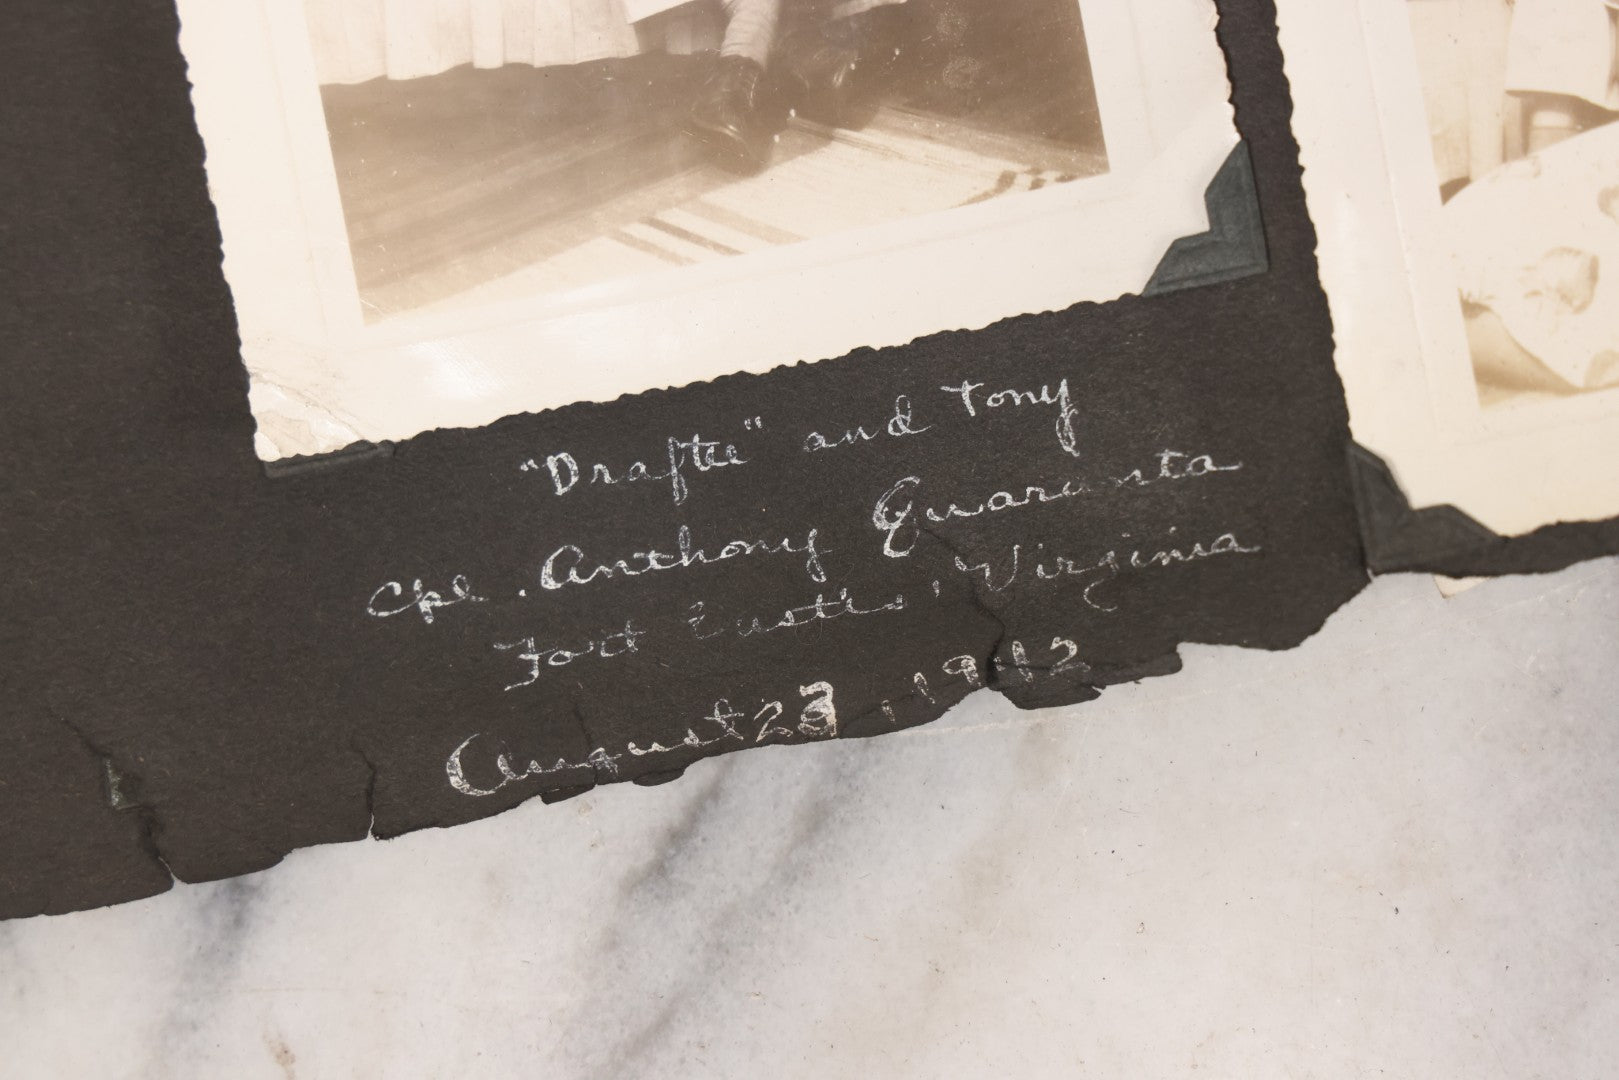 "Draftee" and Tony
Cpl. Anthony Quaranta
Fort Eustis, Virginia
August 23, 1942